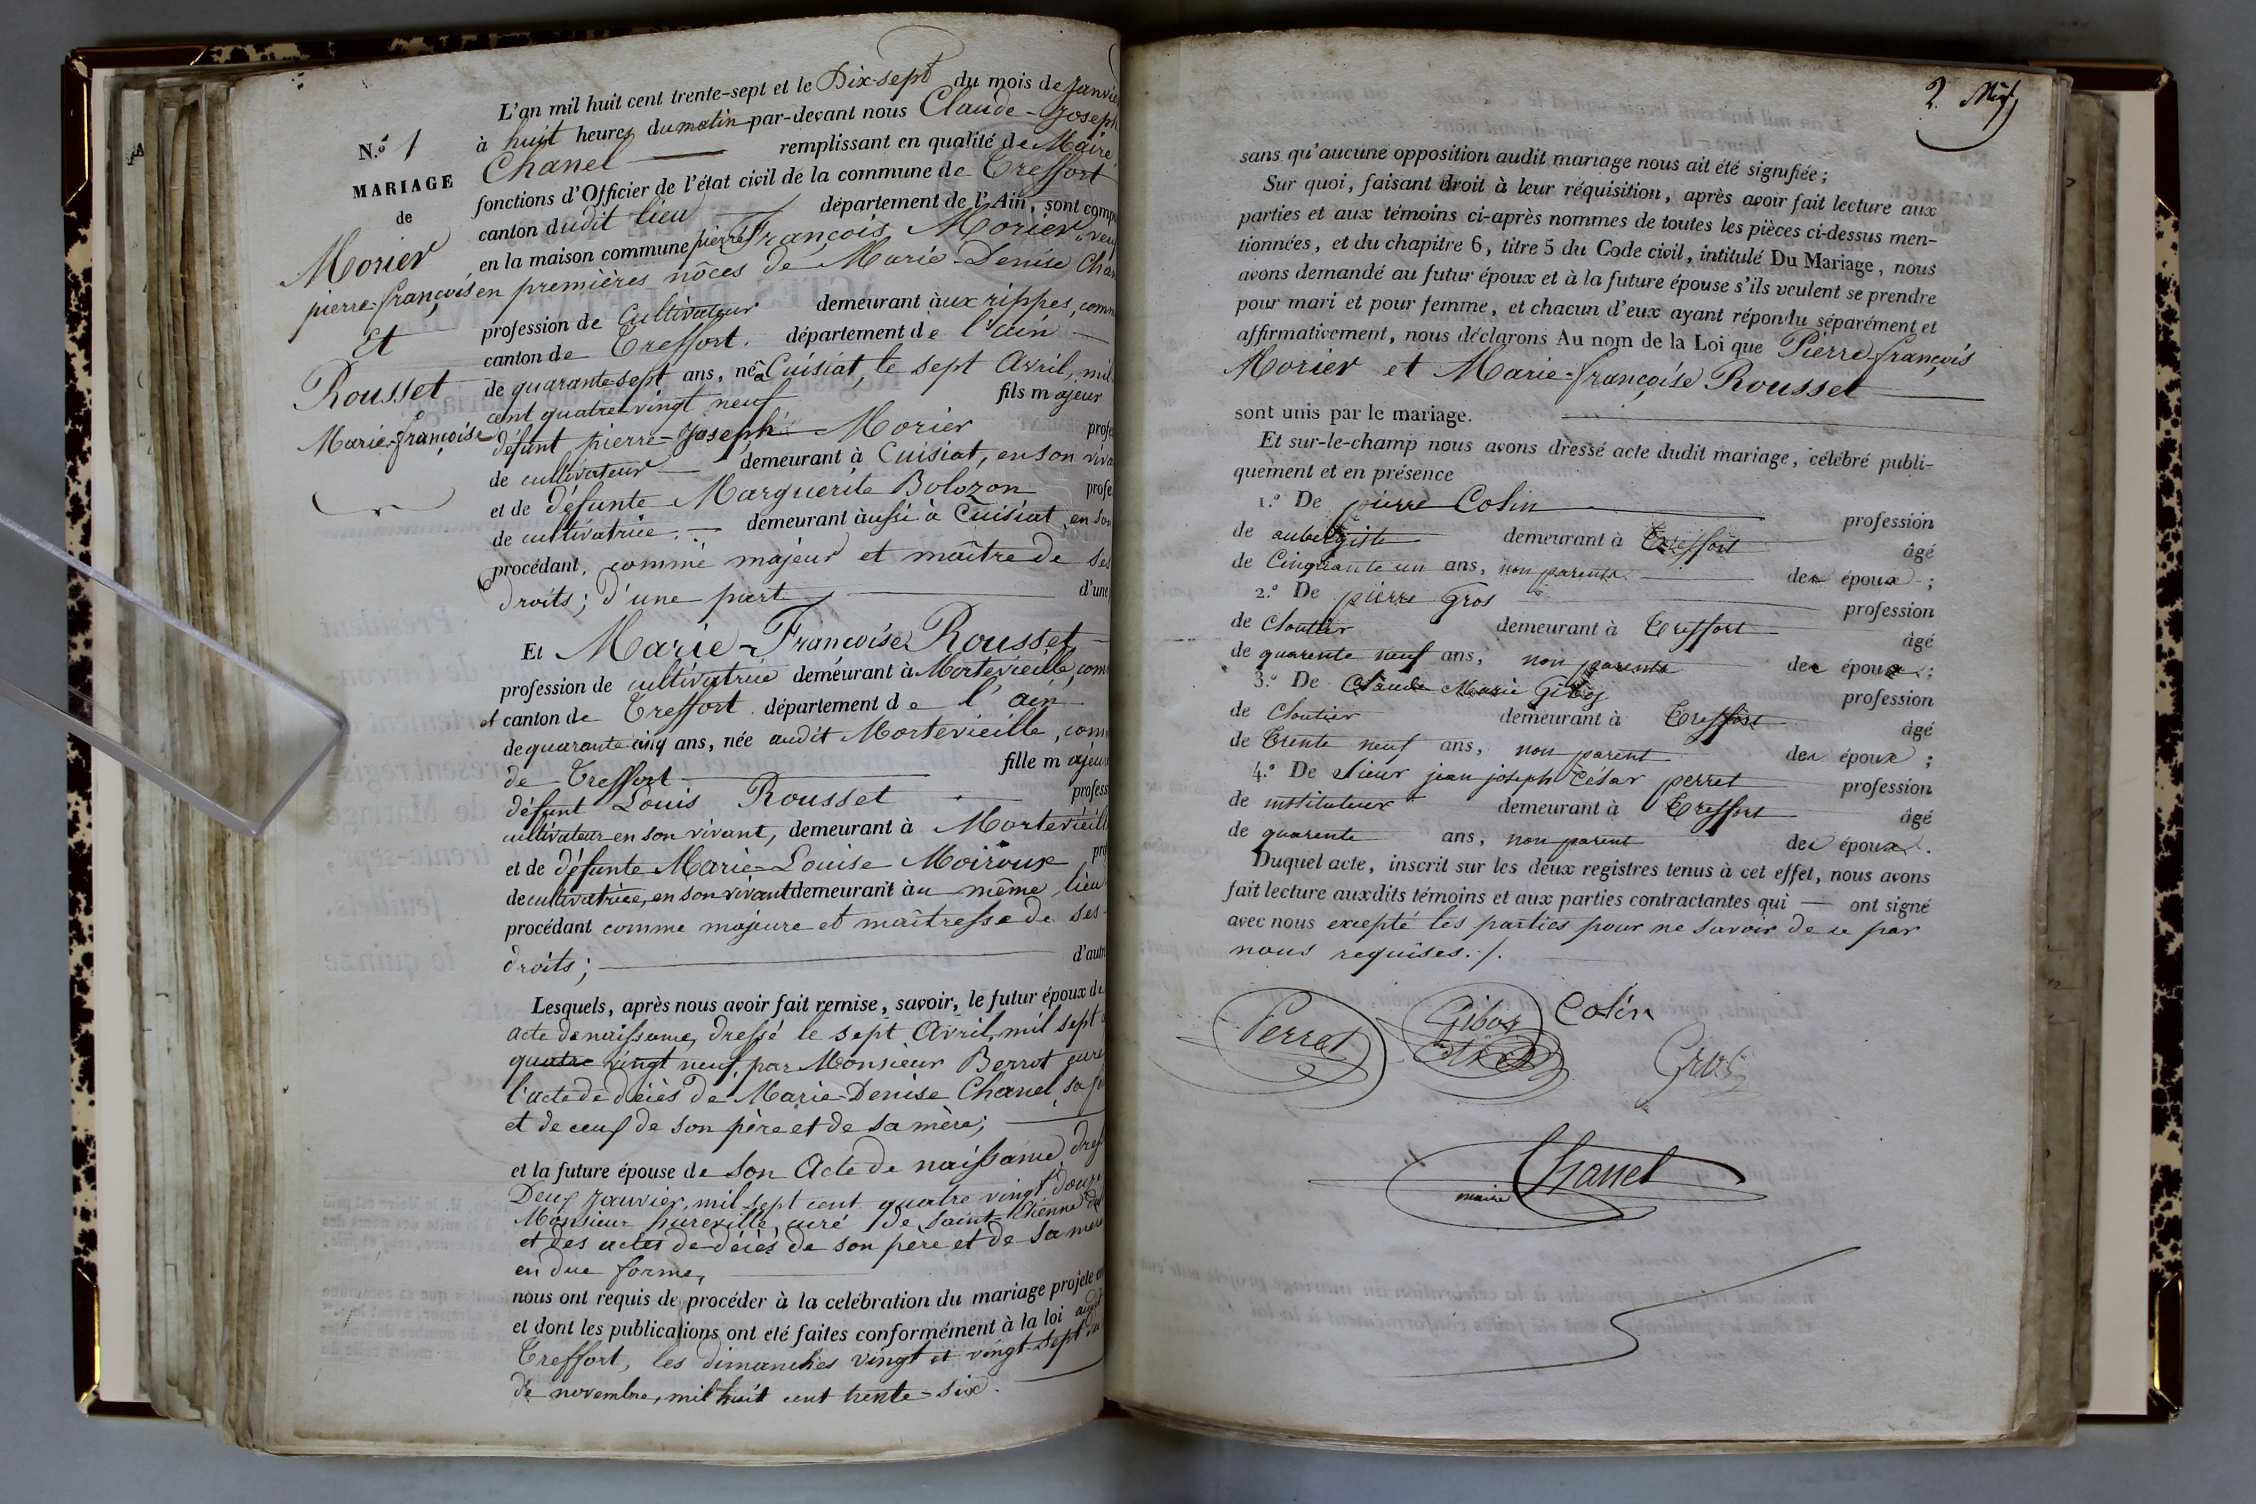 N.º 1
MARIAGE
de
Morier
pierre-françois
Et
Rousset
Marie-françoise
L'an mil huit cent trente-sept et le Dix-sept du mois de Janvier
à huit heures du matin par-devant nous Claude-Joseph
Chanel remplissant en qualité de Maire
fonctions d'Officier de l'état civil de la commune de Treffort
canton dudit lieu département de l'Ain, sont comp
en la maison commune pierre François Morier, veuf
en premières nôces de Marie-Denise Chan
profession de Cultivateur demeurant àux rippes, comm
canton de Treffort. département de l'ain
de quarante-sept ans, né à Cuisiat, le sept Avril, mil
cent quatre-vingt neuf fils majeur
défunt pierre-Joseph Morier profe
de cultivateur demeurant à Cuisiat, en son viva
et de défunte Marguerite Bolozon profe
de cultivatrice. demeurant àussi à Cuisiat, en son
procédant, comme majeur et maître de ses
droits; d'une part d'une
Et Marie-Francoise Rousset
profession de cultivatrice demeurant à Mortevieille, com
et canton de Treffort. département de l'ain
de quarante cinq ans, née audit Mortevieille, com
de Treffort fille majeure
défunt Louis Rousset profess
cultivateur en son vivant, demeurant à Mortevieille
et de défunte Marie-Louise Moiroux pro
de cultivatrice, en son vivant demeurant àu même lieu
procédant comme majeure et maîtresse de ses
droits; d'autre
Lesquels, après nous avoir fait remise, savoir, le futur époux de
acte de naissance, dressé le sept Avril, mil sept c
quatre vingt neuf, par Monsieur Berrot curé
l'acte de décès de Marie-Denise Chanel, sa fe
et de ceux de son père et de sa mère;
et la future épouse de son Acte de naissance, dress
Deux Janvier, mil sept cent quatre vingt douze
Monsieur hureville, curé de Saint-Etienne
et des actes de décès de son père et de sa mère
en due forme,
nous ont requis de procéder à la célébration du mariage projeté
et dont les publications ont été faites conformément à la loi audit
Treffort, les dimanches vingt et vingt-sept du
de novembre, mil huit cent trente-six.
2
sans qu'aucune opposition audit mariage nous ait été signifiée;
Sur quoi, faisant droit à leur réquisition, après avoir fait lecture aux
parties et aux témoins ci-après nommes de toutes les pièces ci-dessus men-
tionnées, et du chapitre 6, titre 5 du Code civil, intitulé Du Mariage, nous
avons demandé au futur époux et à la future épouse s'ils veulent se prendre
pour mari et pour femme, et chacun d'eux ayant répondu séparément et
affirmativement, nous déclarons Au nom de la Loi que Pierre-françois
Morier et Marie-françoise Rousset
sont unis par le mariage.
Et sur-le-champ nous avons dressé acte dudit mariage, célébré publi-
quement et en présence
1.º De pierre Colin profession
de aubergiste demeurant à Treffort âgé
de Cinquante un ans, non parents des époux;
2.º De pierre Gros profession
de cloutier demeurant à Treffort âgé
de quarente neuf ans, non parents des époux;
3.º De Claude Marie Giboz profession
de Cloutier demeurant à Treffort âgé
de trente neuf ans, non parent des époux;
4.º De Sieur jean joseph Cesar perret profession
de instituteur demeurant à Treffort âgé
de quarente ans, non parent des époux.
Duquel acte, inscrit sur les deux registres tenus à cet effet, nous avons
fait lecture auxdits témoins et aux parties contractantes qui — ont signé
avec nous excepté les parties pour ne savoir de ce par
nous requises./.
Perret Giboz Colin
Gros
maire Chanel